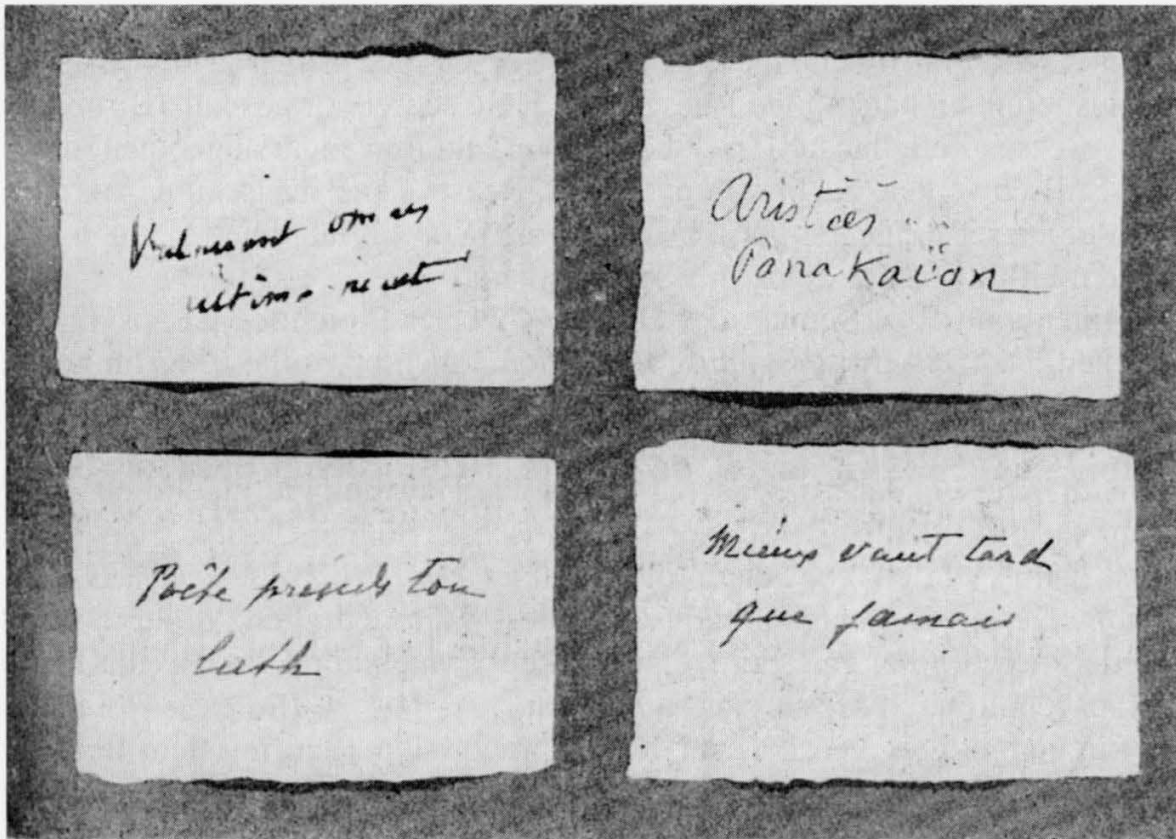 Vulnerant omnes
ultima necat
Aristēēs
Panakaïon
Poëte prends ton
luth
Mieux vaut tard
que jamais